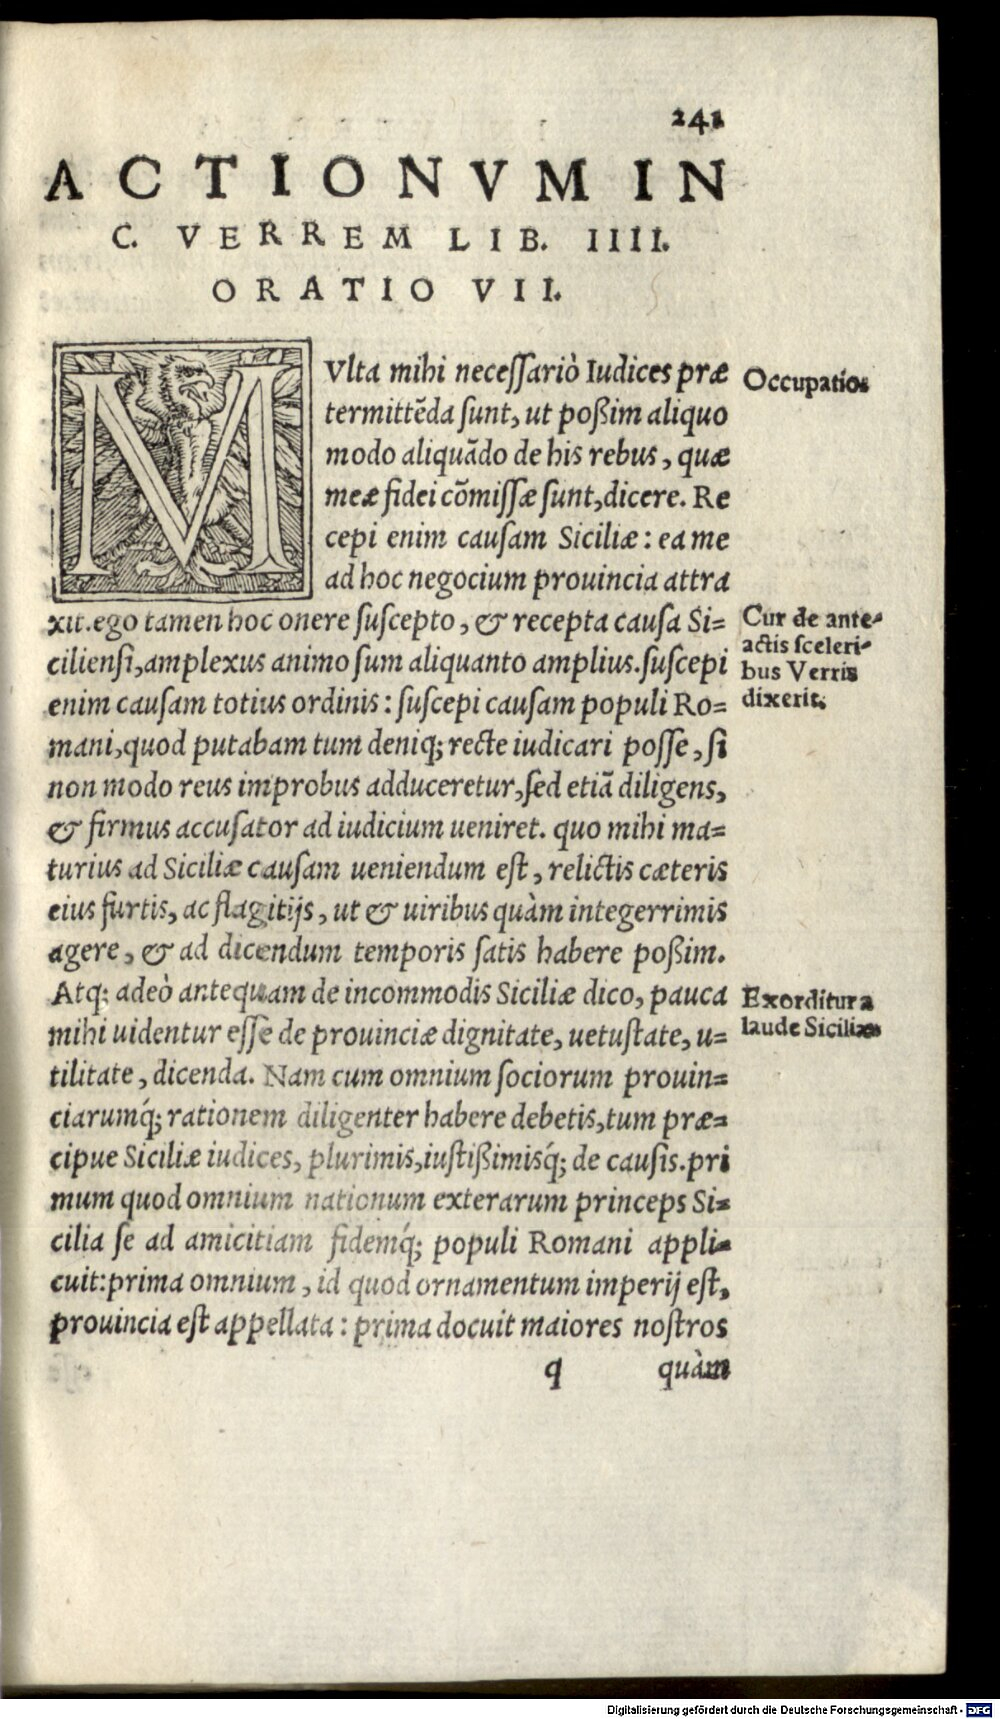 241
ACTIONVM IN
C. VERREM LIB. IIII.
ORATIO VII.
MVlta mihi necessariò Iudices præ
Occupatio.
termittēda sunt, ut poßim aliquo
modo aliquādo de his rebus, quæ
meæ fidei cōmissæ sunt, dicere. Re
cepi enim causam Siciliæ: ea me
ad hoc negocium prouincia attra
xit. ego tamen hoc onere suscepto, & recepta causa Si=
Cur de ante-
ciliensi, amplexus animo sum aliquanto amplius. suscepi
actis sceleri-
bus Verris
enim causam totius ordinis: suscepi causam populi Ro=
dixerit.
mani, quod putabam tum deniq; recte iudicari posse, si
non modo reus improbus adduceretur, sed etiā diligens,
& firmus accusator ad iudicium ueniret. quo mihi ma=
turius ad Siciliæ causam ueniendum est, relictis cæteris
eius furtis, ac flagitijs, ut & uiribus quàm integerrimis
agere, & ad dicendum temporis satis habere poßim.
Atq; adeò antequam de incommodis Siciliæ dico, pauca
Exorditur a
mihi uidentur esse de prouinciæ dignitate, uetustate, u=
laude Siciliæ.
tilitate, dicenda. Nam cum omnium sociorum prouin=
ciarumq́; rationem diligenter habere debetis, tum præ=
cipue Siciliæ iudices, plurimis, iustißimisq́; de causis. pri
mum quod omnium nationum exterarum princeps Si=
cilia se ad amicitiam fidemq́; populi Romani appli=
cuit: prima omnium, id quod ornamentum imperij est,
prouincia est appellata: prima docuit maiores nostros
q quàm
Digitalisierung gefördert durch die Deutsche Forschungsgemeinschaft - DFG